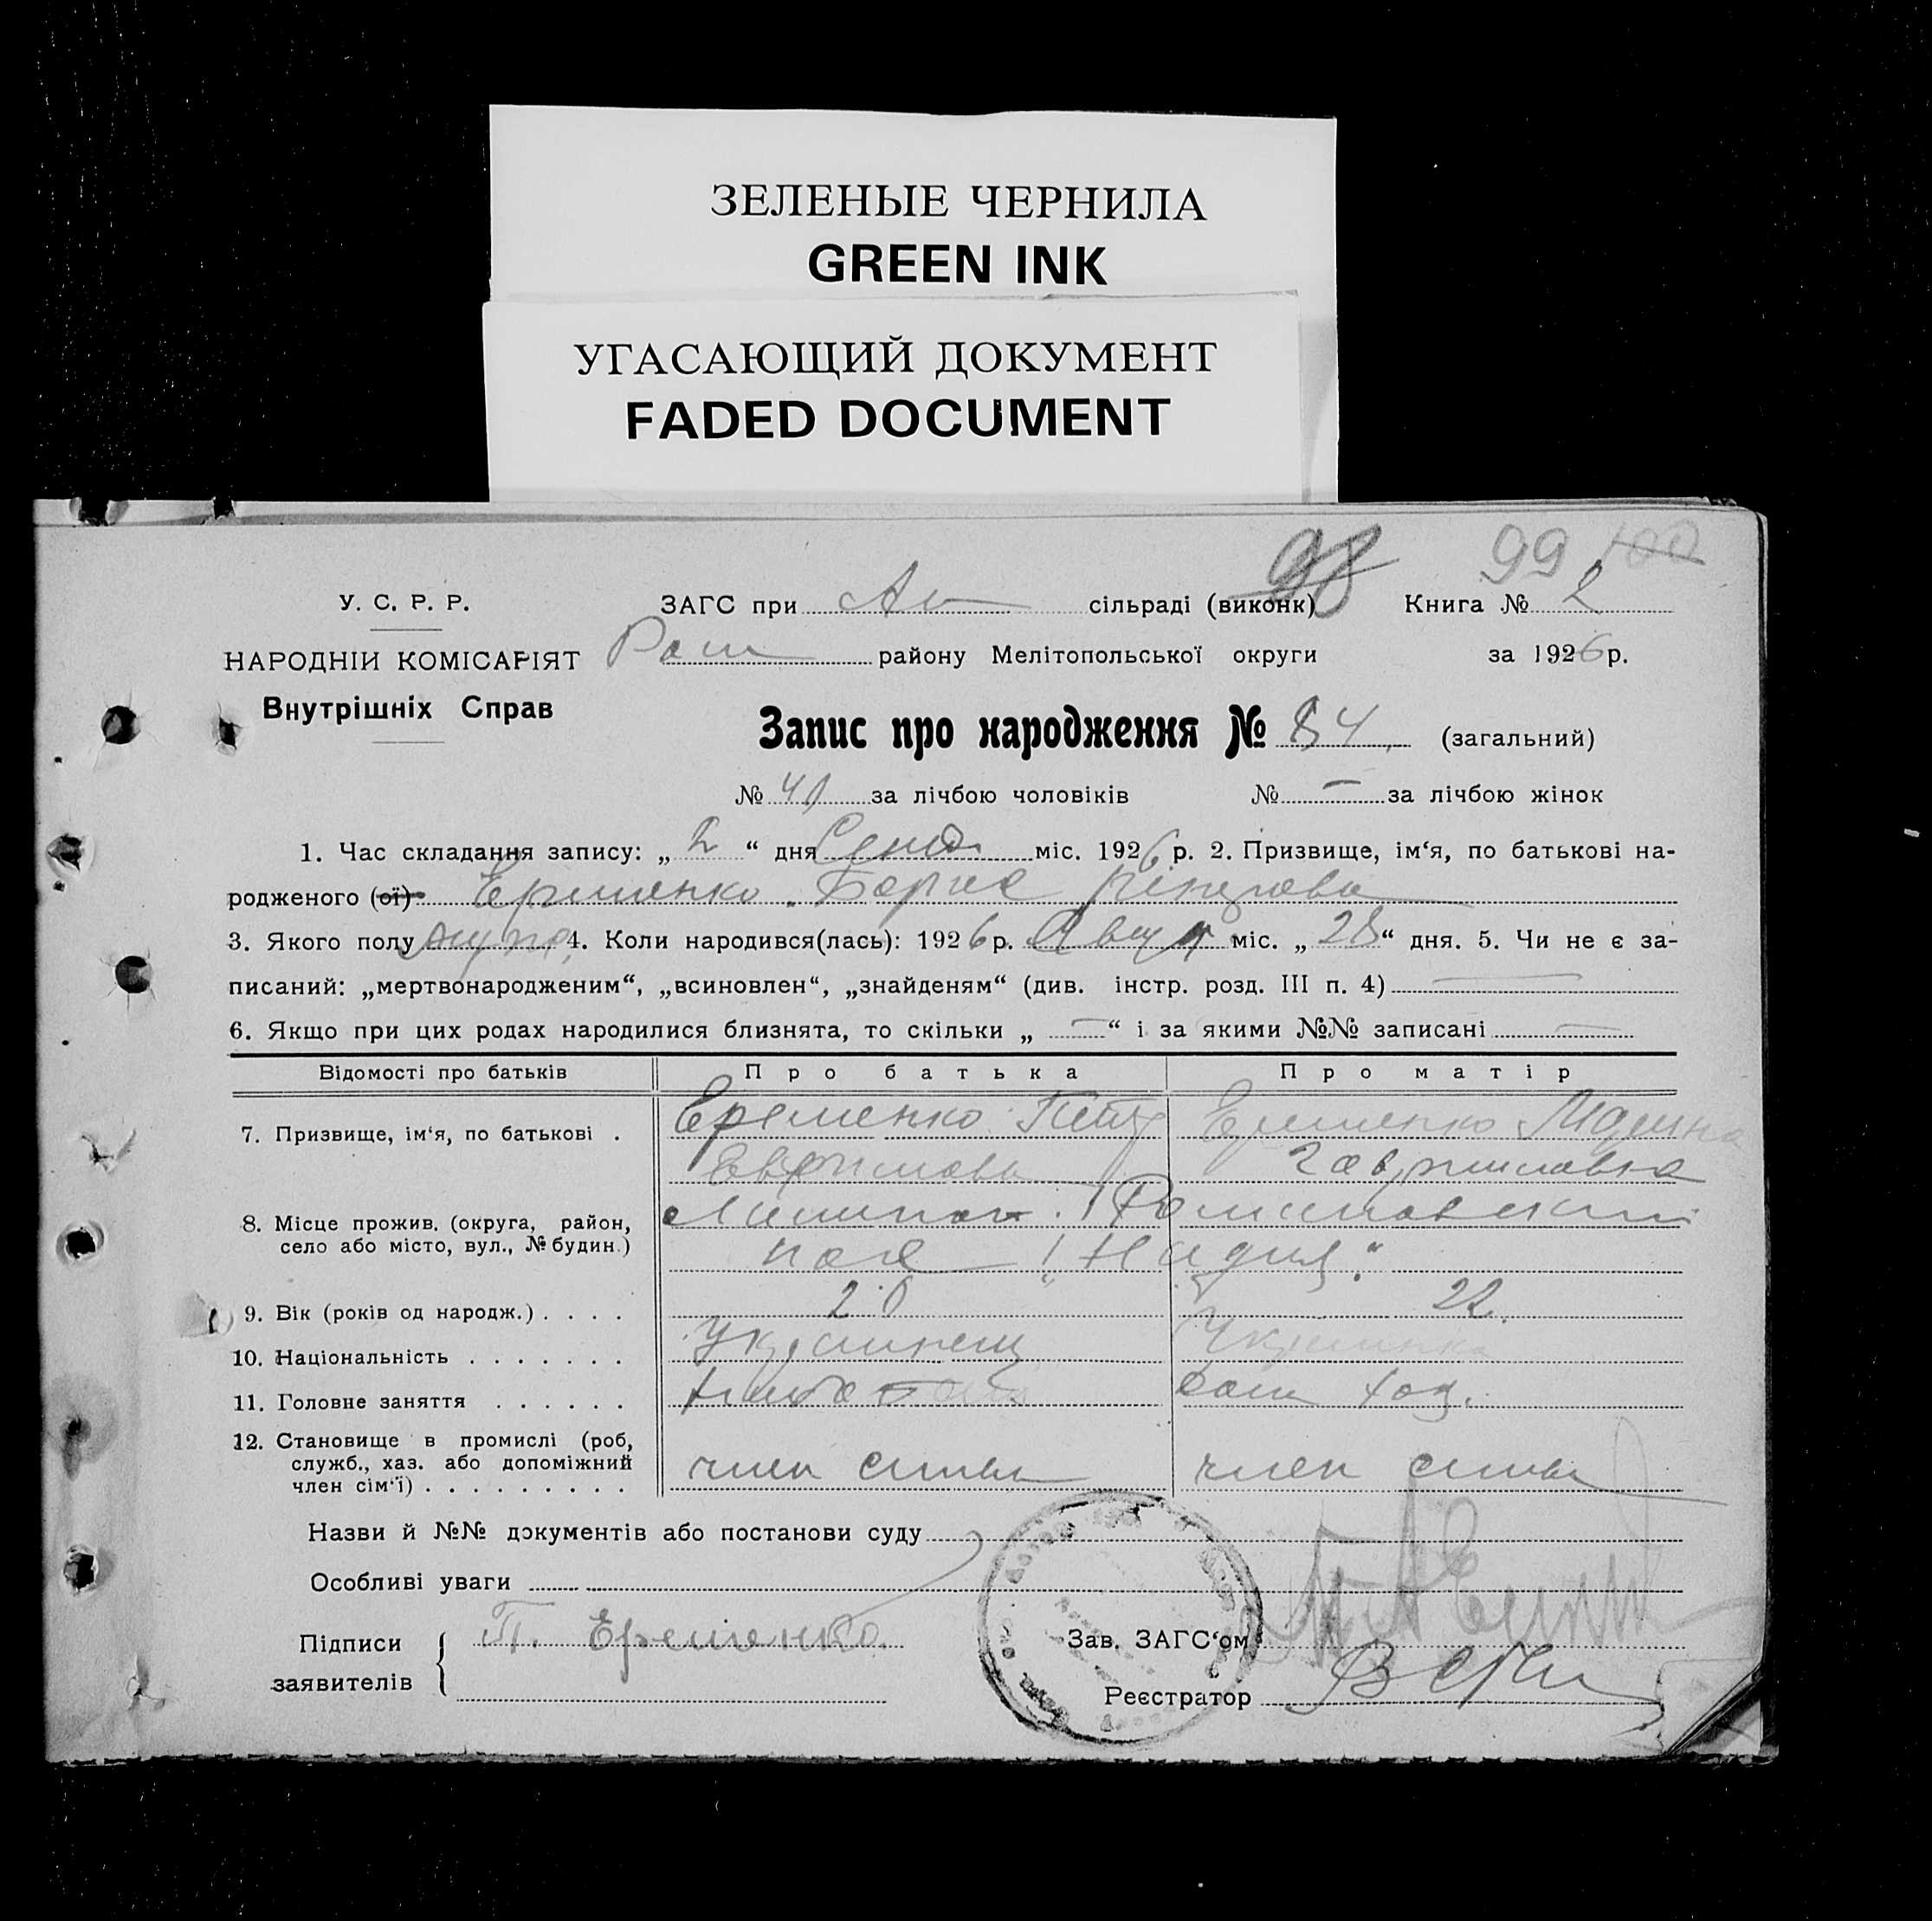 ЗЕЛЕНЫЕ ЧЕРНИЛА
GREEN INK
УГАСАЮЩИЙ ДОКУМЕНТ
FADED DOCUMENT
98 99 100
У. С. Р. Р. ЗАГС при сільраді (виконк) Книга № 2
НАРОДНІИ КОМІСАРІЯТ Ром району Мелітопольської округи за 1926 р.
Внутрішніх Справ
Запис про народження № 84 (загальний)
№ 41 за лічбою чоловіків № — за лічбою жінок
1. Час складання запису: „ 2 “ дня Сент міс. 1926 р. 2. Призвище, ім‘я, по батькові на-
родженого (ої) Еременко Борис
3. Якого полу муж 4. Коли народився(лась): 1926 р. Август міс. „ 28 “ дня. 5. Чи не є за-
писаний: „мертвонародженим“, „всиновлен“, „знайденям“ (див. інстр. розд. III п. 4) —
6. Якщо при цих родах народилися близнята, то скільки „ — “ і за якими №№ записані —
Відомості про батьків Про батька Про матір
7. Призвище, ім‘я, по батькові . Еременко Петр Еременко Марина
Гавриловна
8. Місце прожив. (округа, район, Мелитоп. Романовский
село або місто, вул., № будин.) пос „Надия“
9. Вік (років од народж.) . . . . 20 22
10. Національність . . . . . . . Украинец Украинка
11. Головне заняття . . . . . . хлебопаш дом хоз.
12. Становище в промислі (роб,
служб., хаз. або допоміжний член семьи член семьи
член сім‘ї) . . . . . . . . .
Назви й №№ документів або постанови суду
Особливі уваги
Підписи П. Еременко Зав. ЗАГС‘ом
заявителів Реєстратор